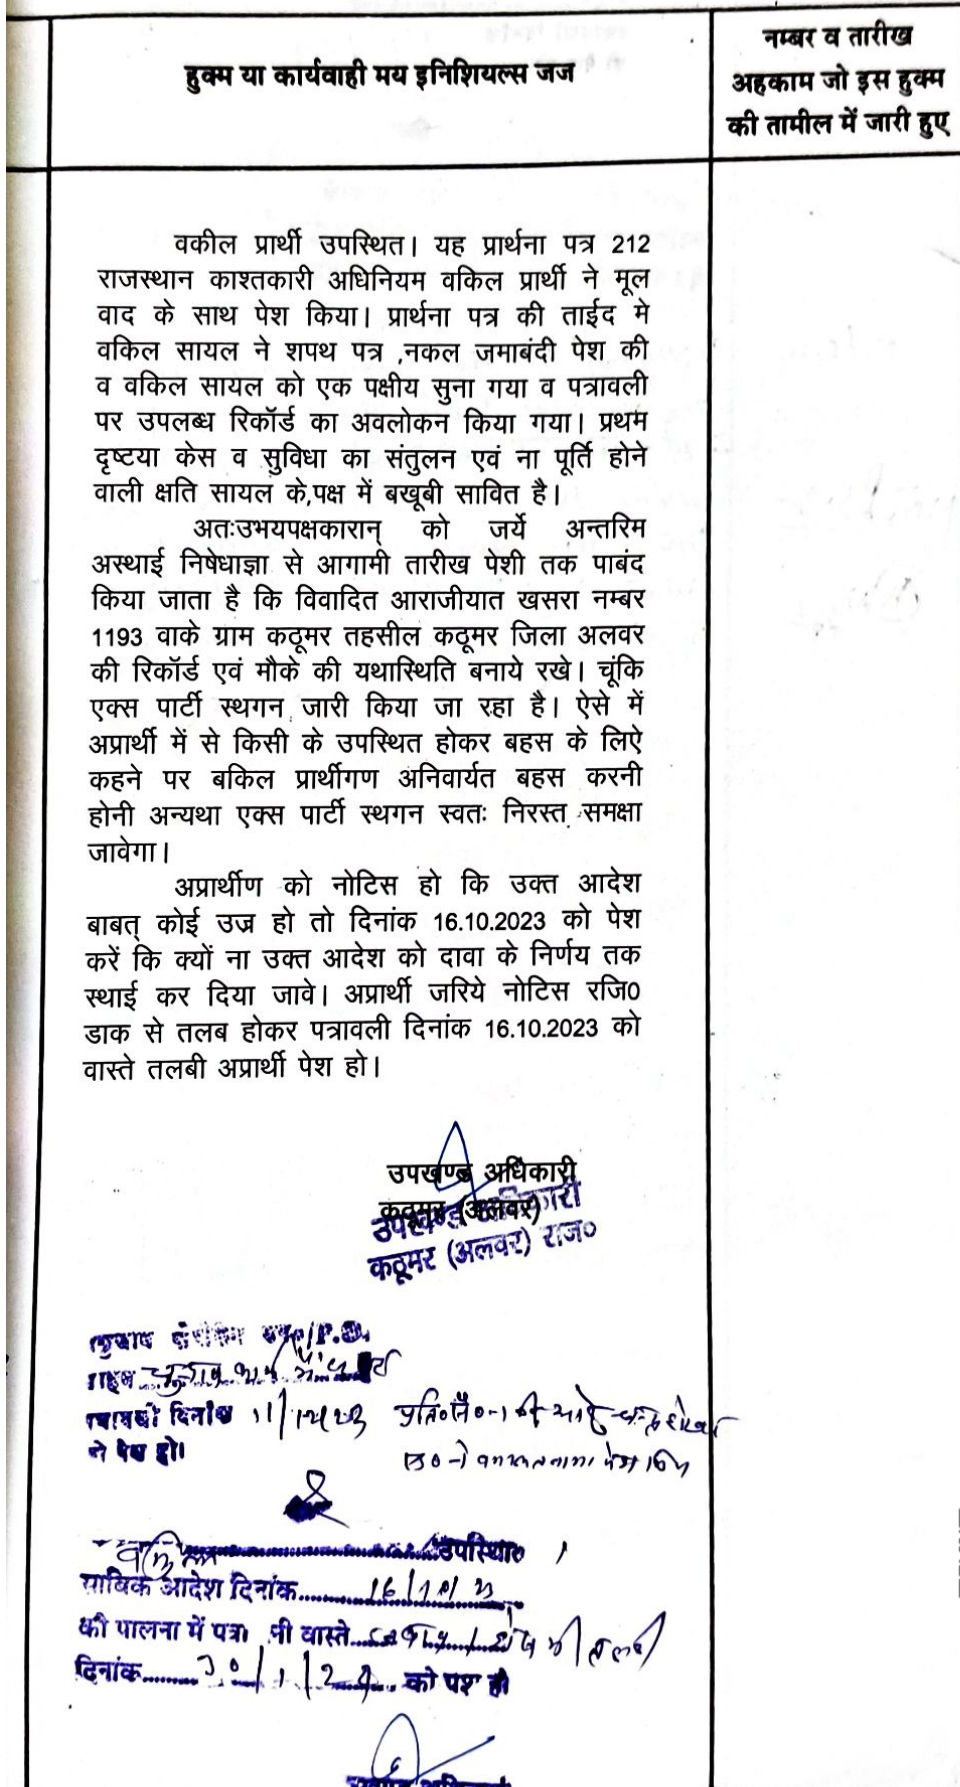 हुक्म या कार्यवाही मय इनिशियल्स जज
नम्बर व तारीख
अहकाम जो इस हुक्म
की तामील में जारी हुए
वकील प्रार्थी उपस्थित। यह प्रार्थना पत्र 212
राजस्थान काश्तकारी अधिनियम वकिल प्रार्थी ने मूल
वाद के साथ पेश किया। प्रार्थना पत्र की ताईद मे
वकिल सायल ने शपथ पत्र ,नकल जमाबंदी पेश की
व वकिल सायल को एक पक्षीय सुना गया व पत्रावली
पर उपलब्ध रिकॉर्ड का अवलोकन किया गया। प्रथम
दृष्टया केस व सुविधा का संतुलन एवं ना पूर्ति होने
वाली क्षति सायल के,पक्ष में बखूबी सावित है।
अतःउभयपक्षकारान् को जर्ये अन्तरिम
अस्थाई निषेधाज्ञा से आगामी तारीख पेशी तक पाबंद
किया जाता है कि विवादित आराजीयात खसरा नम्बर
1193 वाके ग्राम कठूमर तहसील कठूमर जिला अलवर
की रिकॉर्ड एवं मौके की यथास्थिति बनाये रखे। चूंकि
एक्स पार्टी स्थगन जारी किया जा रहा है। ऐसे में
अप्रार्थी में से किसी के उपस्थित होकर बहस के लिऐ
कहने पर बकिल प्रार्थीगण अनिवार्यत बहस करनी
होनी अन्यथा एक्स पार्टी स्थगन स्वतः निरस्त समक्षा
जावेगा।
अप्रार्थीण को नोटिस हो कि उक्त आदेश
बाबत् कोई उज्र हो तो दिनांक 16.10.2023 को पेश
करें कि क्यों ना उक्त आदेश को दावा के निर्णय तक
स्थाई कर दिया जावे। अप्रार्थी जरिये नोटिस रजि0
डाक से तलब होकर पत्रावली दिनांक 16.10.2023 को
वास्ते तलबी अप्रार्थी पेश हो।
उपखण्ड अधिकारी
कठूमर (अलवर)
उपखण्ड अधिकारी
कठूमर (अलवर) राज०
दिनांक
ने पेश हो।
उपस्थित
साबिक आदेश दिनांक 16/10/23
की पालना में पत्रा वास्ते
दिनांक 30/1/24 को पेश हो